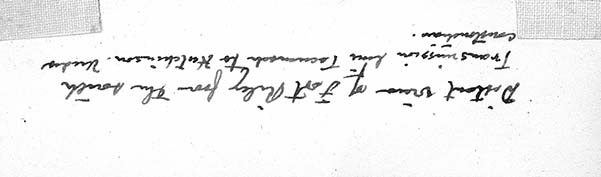 Distant view of Fort Riley from the south
Transmission line Tecumseh to Hutchinson. Under
construction.